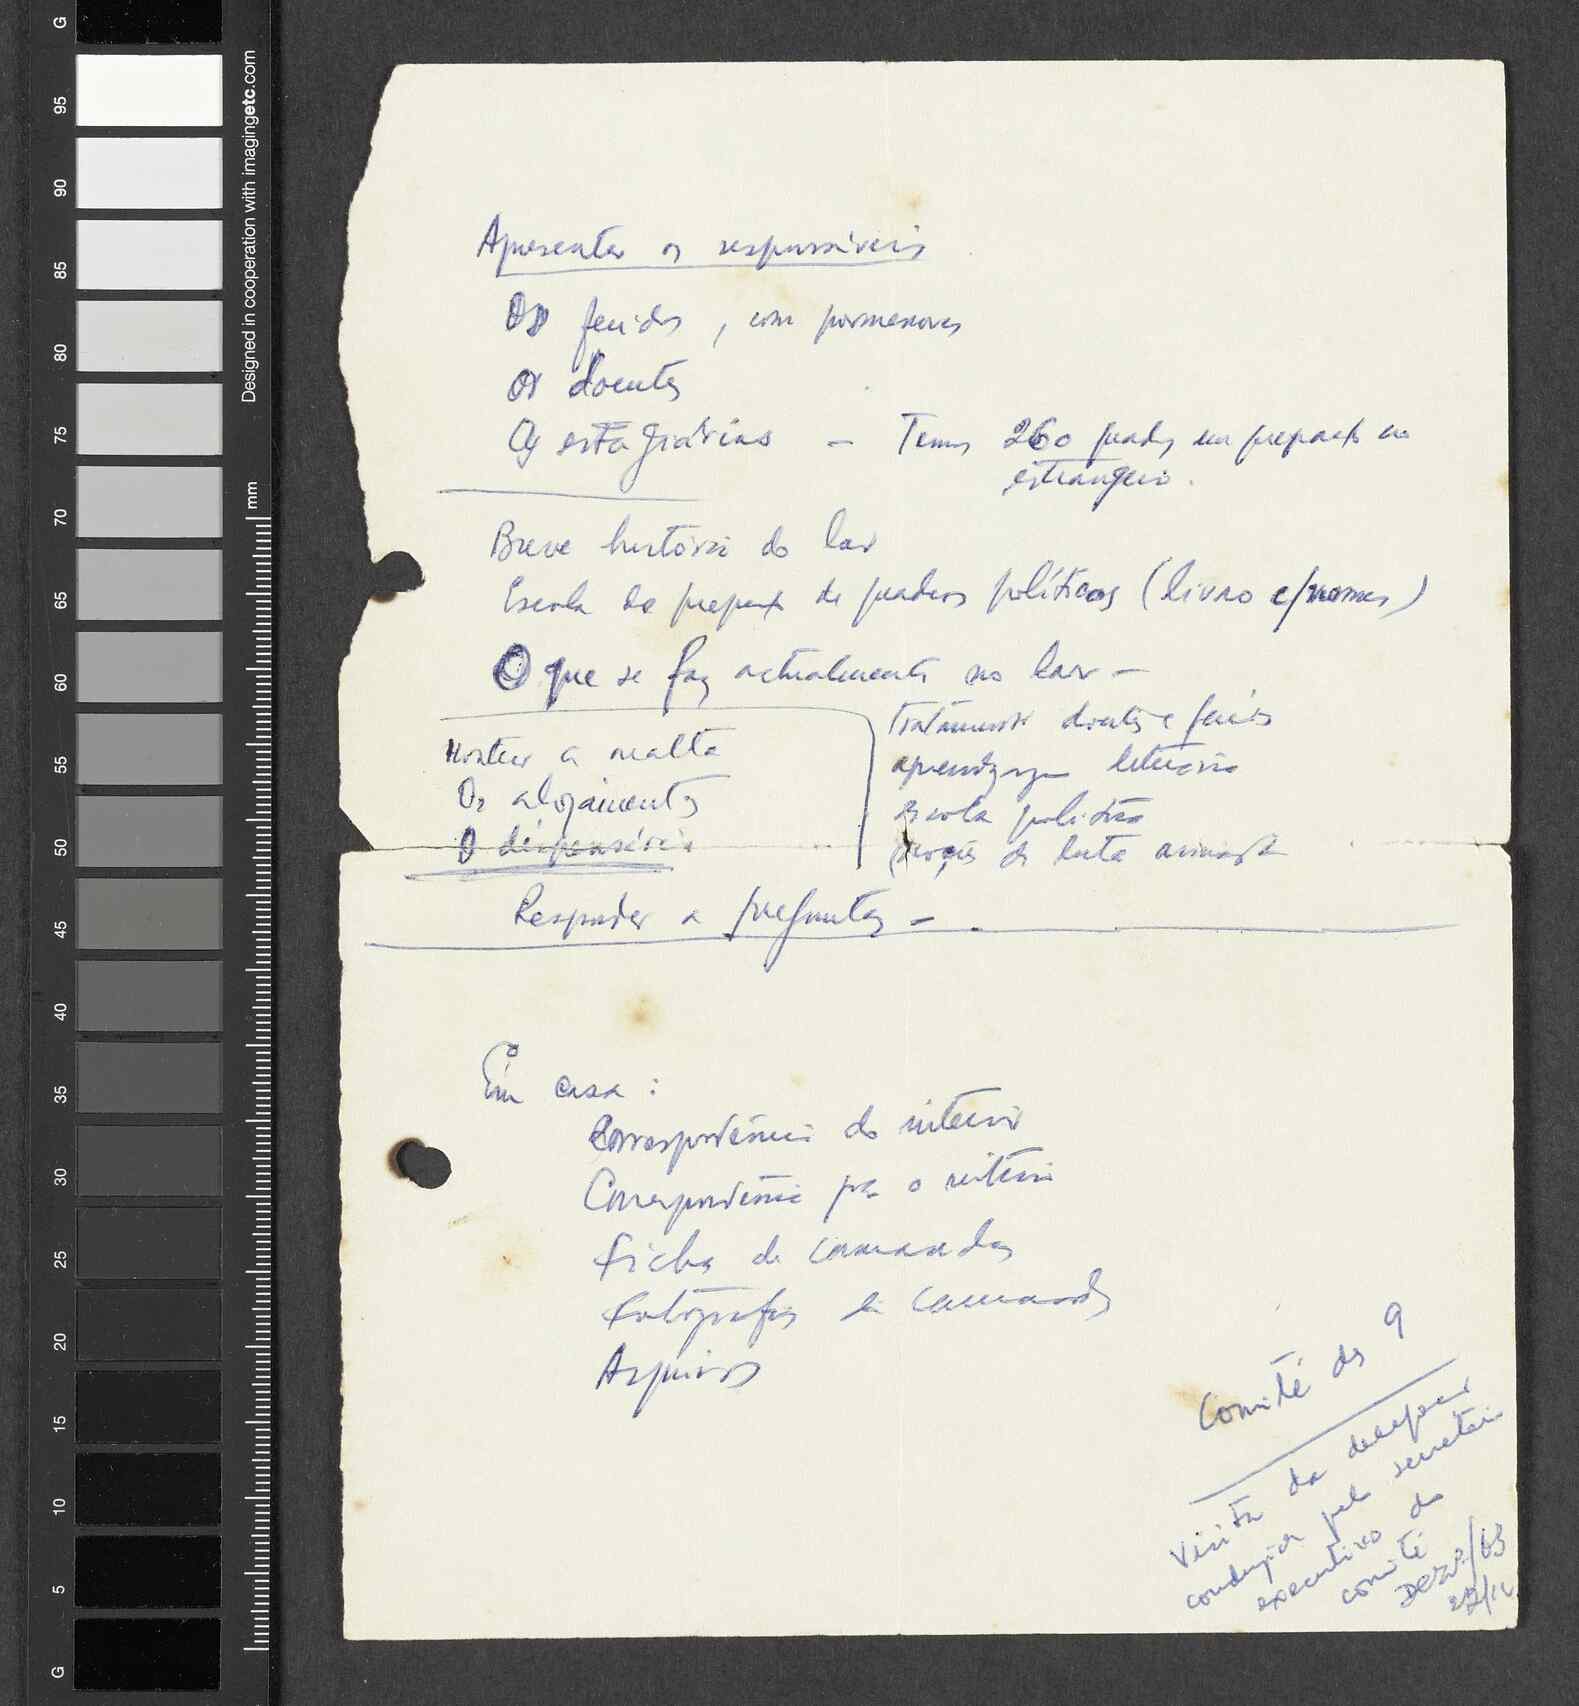 Apresentar os responsáveis
Os feridos, com pormenores
Os doentes
Os estagiários — Temos 260 quadros em preparação no
estrangeiro.
Breve história do lar
Escola de prepar. de quadros políticos (livro c/nomes)
O que se faz actualmente no lar —
tratamento doentes e feridos
aprendizagem literária
escola política
noções de luta armada
Mostrar a malta
Os alojamentos
O dispensário
Responder a perguntas —
Em casa:
Correspondência do interior
Correspondência pra o interior
Fichas de camaradas
Fotografias de camaradas
Arquivos
Comité dos 9
Visita da
conduzida pelo secretário
executivo do
comité
Dezº/63
G
95
90
85
80
75
70
65
60
55
50
45
40
35
30
25
20
15
10
5
G
mm
Designed in cooperation with imagingetc.com